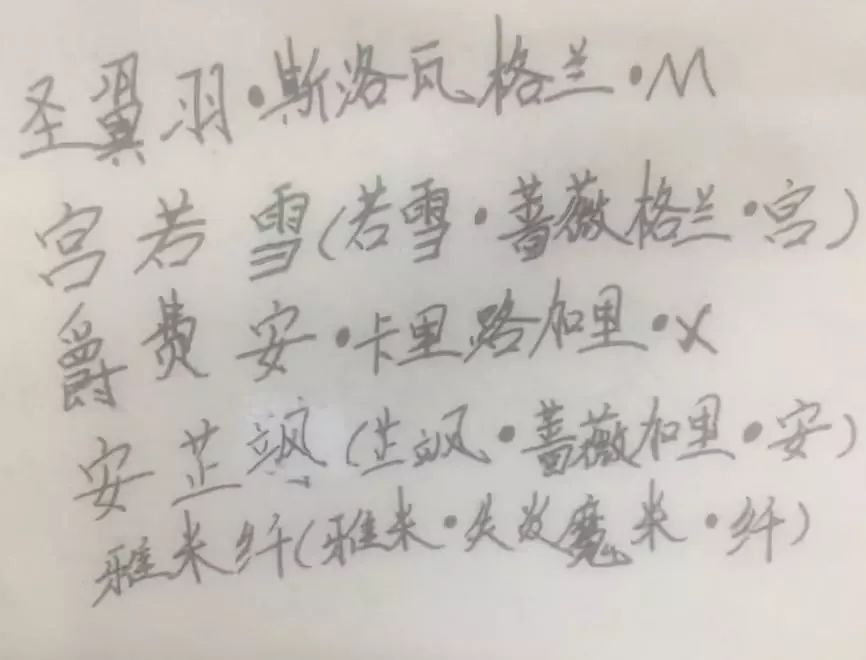 圣翼羽·斯洛瓦格兰·M
宫若雪(若雪·蔷薇格兰·宫)
爵费安·卡里路加里·X
安芷飒(芷飒·蔷薇加里·安)
雅米纤(雅米·失落魔米·纤)